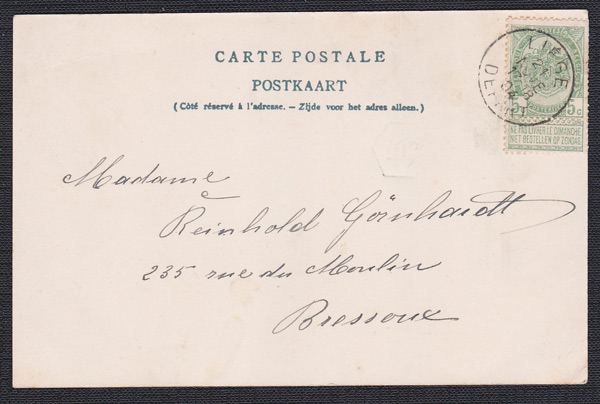 CARTE POSTALE
POSTKAART
(Côté réservé à l'adresse. – Zijde voor het adres alleen.)
LIEGE
DEPART
5c
NE PAS LIVRER LE DIMANCHE
NIET BESTELLEN OP ZONDAG
Madame
Reinhold Görnhardt
235 rue du Moulin
Bressoux